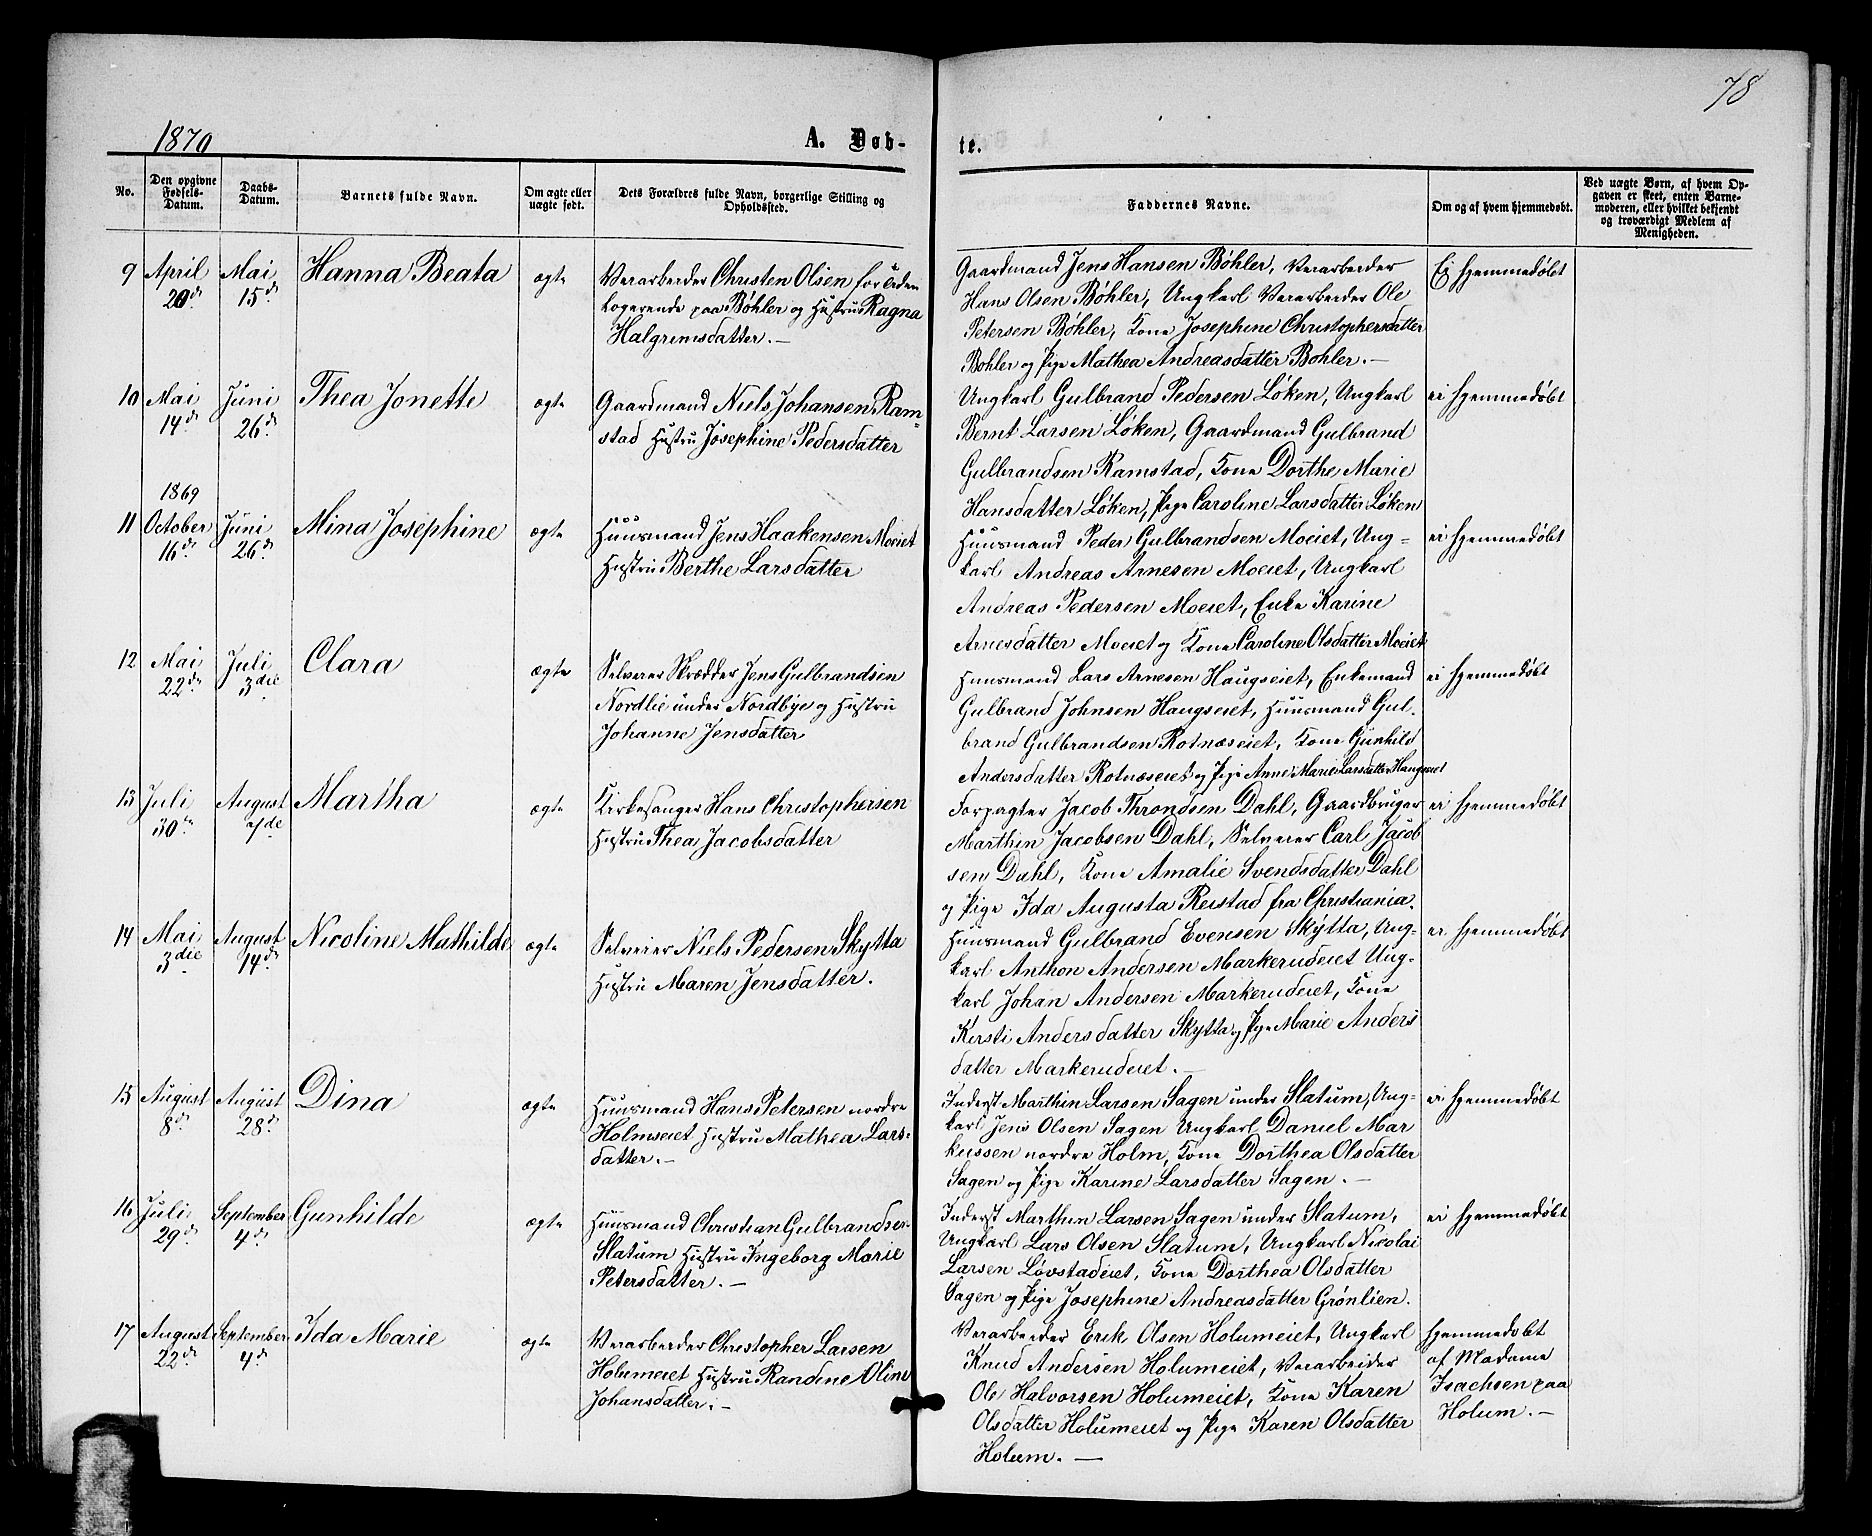 78
1870
A. Døb-
te.
No.
Den opgivne
Fødsels-
Datum.
Daabs-
Datum.
Barnets fulde Navn.
Om ægte eller
uægte født.
Dets Forældres fulde Navn, borgerlige Stilling og
Opholdssted.
Faddernes Navne.
Om og af hvem hjemmedøbt.
Ved uægte Børn, af hvem Op-
gaven er skeet, enten Barne-
moderen, eller hvilket bekjendt
og troværdigt Medlem af
Menigheden.
9 April
20de
Mai
15de
Hanna Beata
ægte
Veiarbeider Christen Olsen for tiden
logerende paa Bøhler og Hustru Ragna
Halgrimsdatter. —
Gaardmand Jens Hansen Bøhler, Veiarbeider
Hans Olsen Bøhler, Ungkarl Veiarbeider Ole
Petersen Bøhler, Kone Josephine Christophersdatter
Bøhler og Pige Mathea Andreasdatter Bøhler. —
Ei hjemmedøbt
10 Mai
14de
Juni
26de
Thea Jonette
ægte
Gaardmand Niels Johansen Ram-
stad Hustru Josephine Pedersdatter
Ungkarl Gulbrand Pedersen Løken, Ungkarl
Bernt Larsen Løken, Gaardmand Gulbrand
Gulbrandsen Ramstad, Kone Dorthe Marie
Hansdatter Løken, Pige Caroline Larsdatter Løken
ei hjemmedøbt
11
1869
October
16de
Juni
26de
Mina Josephine
ægte
Huusmand Jens Haakensen Moeiet
Hustru Berthe Larsdatter
Huusmand Peder Gulbrandsen Moeiet, Ung-
karl Andreas Arnesen Moeiet, Ungkarl
Andreas Pedersen Moeiet, Enke Karine
Arnesdatter Moeiet og Kone Caroline Olsdatter Moeiet
ei hjemmedøbt
12 Mai
22de
Juli
3die
Clara
ægte
Selveier Skrædder Jens Gulbrandsen
Nordlie under Nordbye og Hustru
Johanne Jensdatter
Huusmand Lars Arnesen Haugseiet, Enkemand
Gulbrand Johnsen Haugseiet, Huusmand Gul-
brand Gulbrandsen Rotnæseiet, Kone Gunhild
Andersdatter Rotnæseiet og Pige Anne Marie Larsdatter Haugseiet
ei hjemmedøbt
13 Juli
30te
August
7de
Martha
ægte
Kirkesanger Hans Christophersen
Hustru Thea Jacobsdatter
Forpagter Jacob Throndsen Dahl, Gaardbruger
Marthin Jacobsen Dahl, Selveier Carl Jacob
sen Dahl, Kone Amalie Svendsdatter Dahl
og Pige Ida Augusta Reistad fra Christiania.
ei hjemmedøbt
14 Mai
3die
August
14de
Nicoline Mathilde
ægte
Selveier Niels Pedersen Skytta
Hustru Maren Jensdatter.
Huusmand Gulbrand Evensen Skytta, Ung-
karl Anthon Andersen Markerudeiet Ung-
karl Johan Andersen Markerudeiet, Kone
Kersti Andersdatter Skytta og Pige Marie Anders
datter Markerudeiet. —
ei hjemmedøbt
15 August
8de
August
28de
Dina
ægte
Huusmand Hans Petersen nordre
Holmseiet Hustru Mathea Lars-
datter. —
Inderst Marthin Larsen Sagen under Slatum, Ung-
karl Jens Olsen Sagen Ungkarl Daniel Mar
kussen nordre Holm, Kone Dorthea Olsdatter
Sagen og Pige Karine Larsdatter Sagen. —
ei hjemmedøbt
16 Juli
29de
September
4de
Gunhilde
ægte
Huusmand Christian Gulbrandsen
Slatum Hustru Ingeborg Marie
Petersdatter. —
Inderst Marthin Larsen Sagen under Slatum,
Ungkarl Lars Olsen Slatum, Ungkarl Nicolai
Larsen Løvstadeiet, Kone Dorthea Olsdatter
Sagen og Pige Josephine Andreasdatter Grønlien.
ei hjemmedøbt
17 August
22de
September
4de
Ida Marie
ægte
Veiarbeider Christopher Larsen
Holumeiet Hustru Randine Oline
Johansdatter. —
Veiarbeider Erik Olsen Holumeiet, Ungkarl
Knud Andersen Holumeiet, Veiarbeider
Ole Halvorsen Holumeiet, Kone Karen
Olsdatter Holumeiet og Pige Karen Olsdatter
Holum. —
hjemmedøbt
af Madame
Isachsen paa
Holum. —